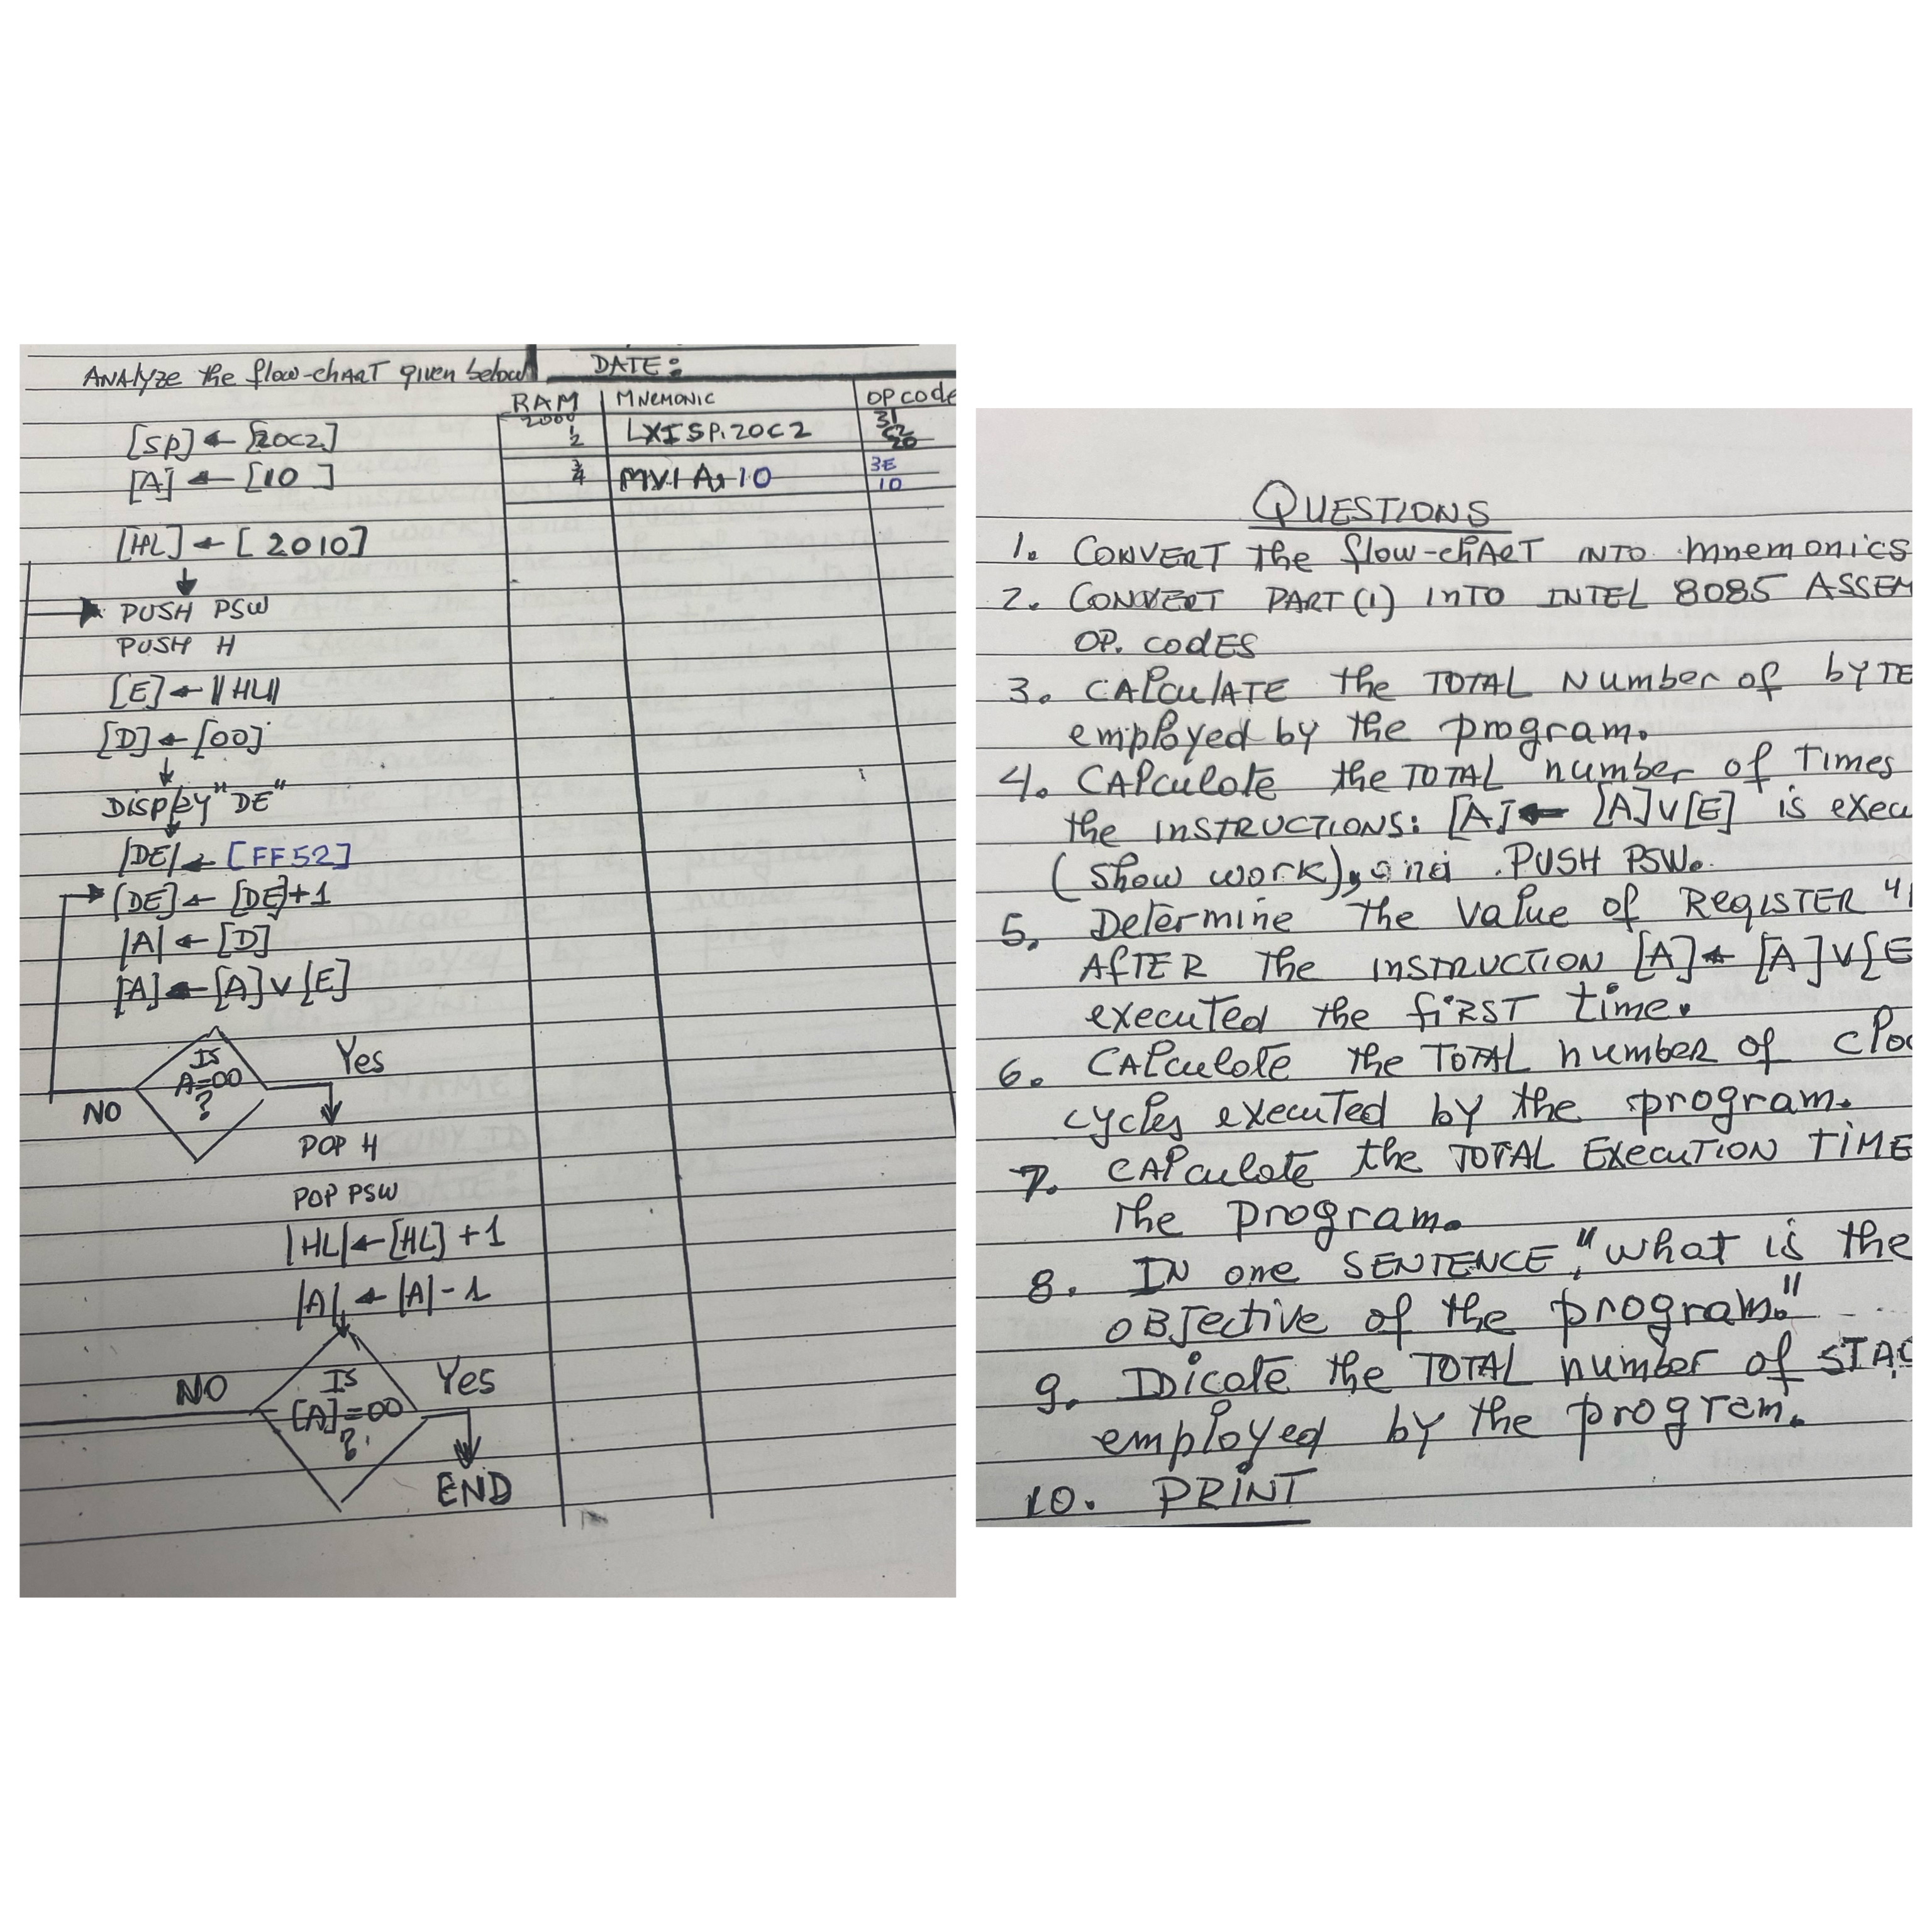 ANAlyze the flow-chART given below
DATE:
RAM MNEMONIC OP code
2000 31
1 C2
[SP] ← [20C2] 2 LXI SP, 20C2 20
3 3E
[A] ← [10] 4 MVI A, 10 10
[HL] ← [2010]
PUSH PSW
PUSH H
[E] ← ||HL||
[D] ← [00]
DISPLAY "DE"
|DE| ← [FF52]
[DE] ← [DE]+1
|A| ← [D]
[A] ← [A] V [E]
IS
A=00
?
Yes
NO
POP H
POP PSW
|HL| ← [HL] +1
|A| ← |A| - 1
IS
[A]=00
?
NO
Yes
END
QUESTIONS
1. CONVERT the flow-chART INTO mnemonics
2. CONVERT PART (1) INTO INTEL 8085 ASSEM
OP. codES
3. CALCULATE the TOTAL Number of byTE
employed by the program.
4. CALculate the TOTAL number of Times
the INSTRUCTIONS: [A] ← [A]V[E] is execu
(show work), and PUSH PSW.
5. Determine the value of REgISTER "
AFTER The INSTRUCTION [A] ← [A]V[E
executed the fiRST time.
6. CALculate the TOTAL number of cloc
cycles executed by the program.
7. CALculate the TOTAL EXecuTION TIME
the program.
8. IN one SENTENCE, "what is the
OBJective of the program."
9. IDicate the TOTAL number of STAC
employed by the program.
10. PRINT